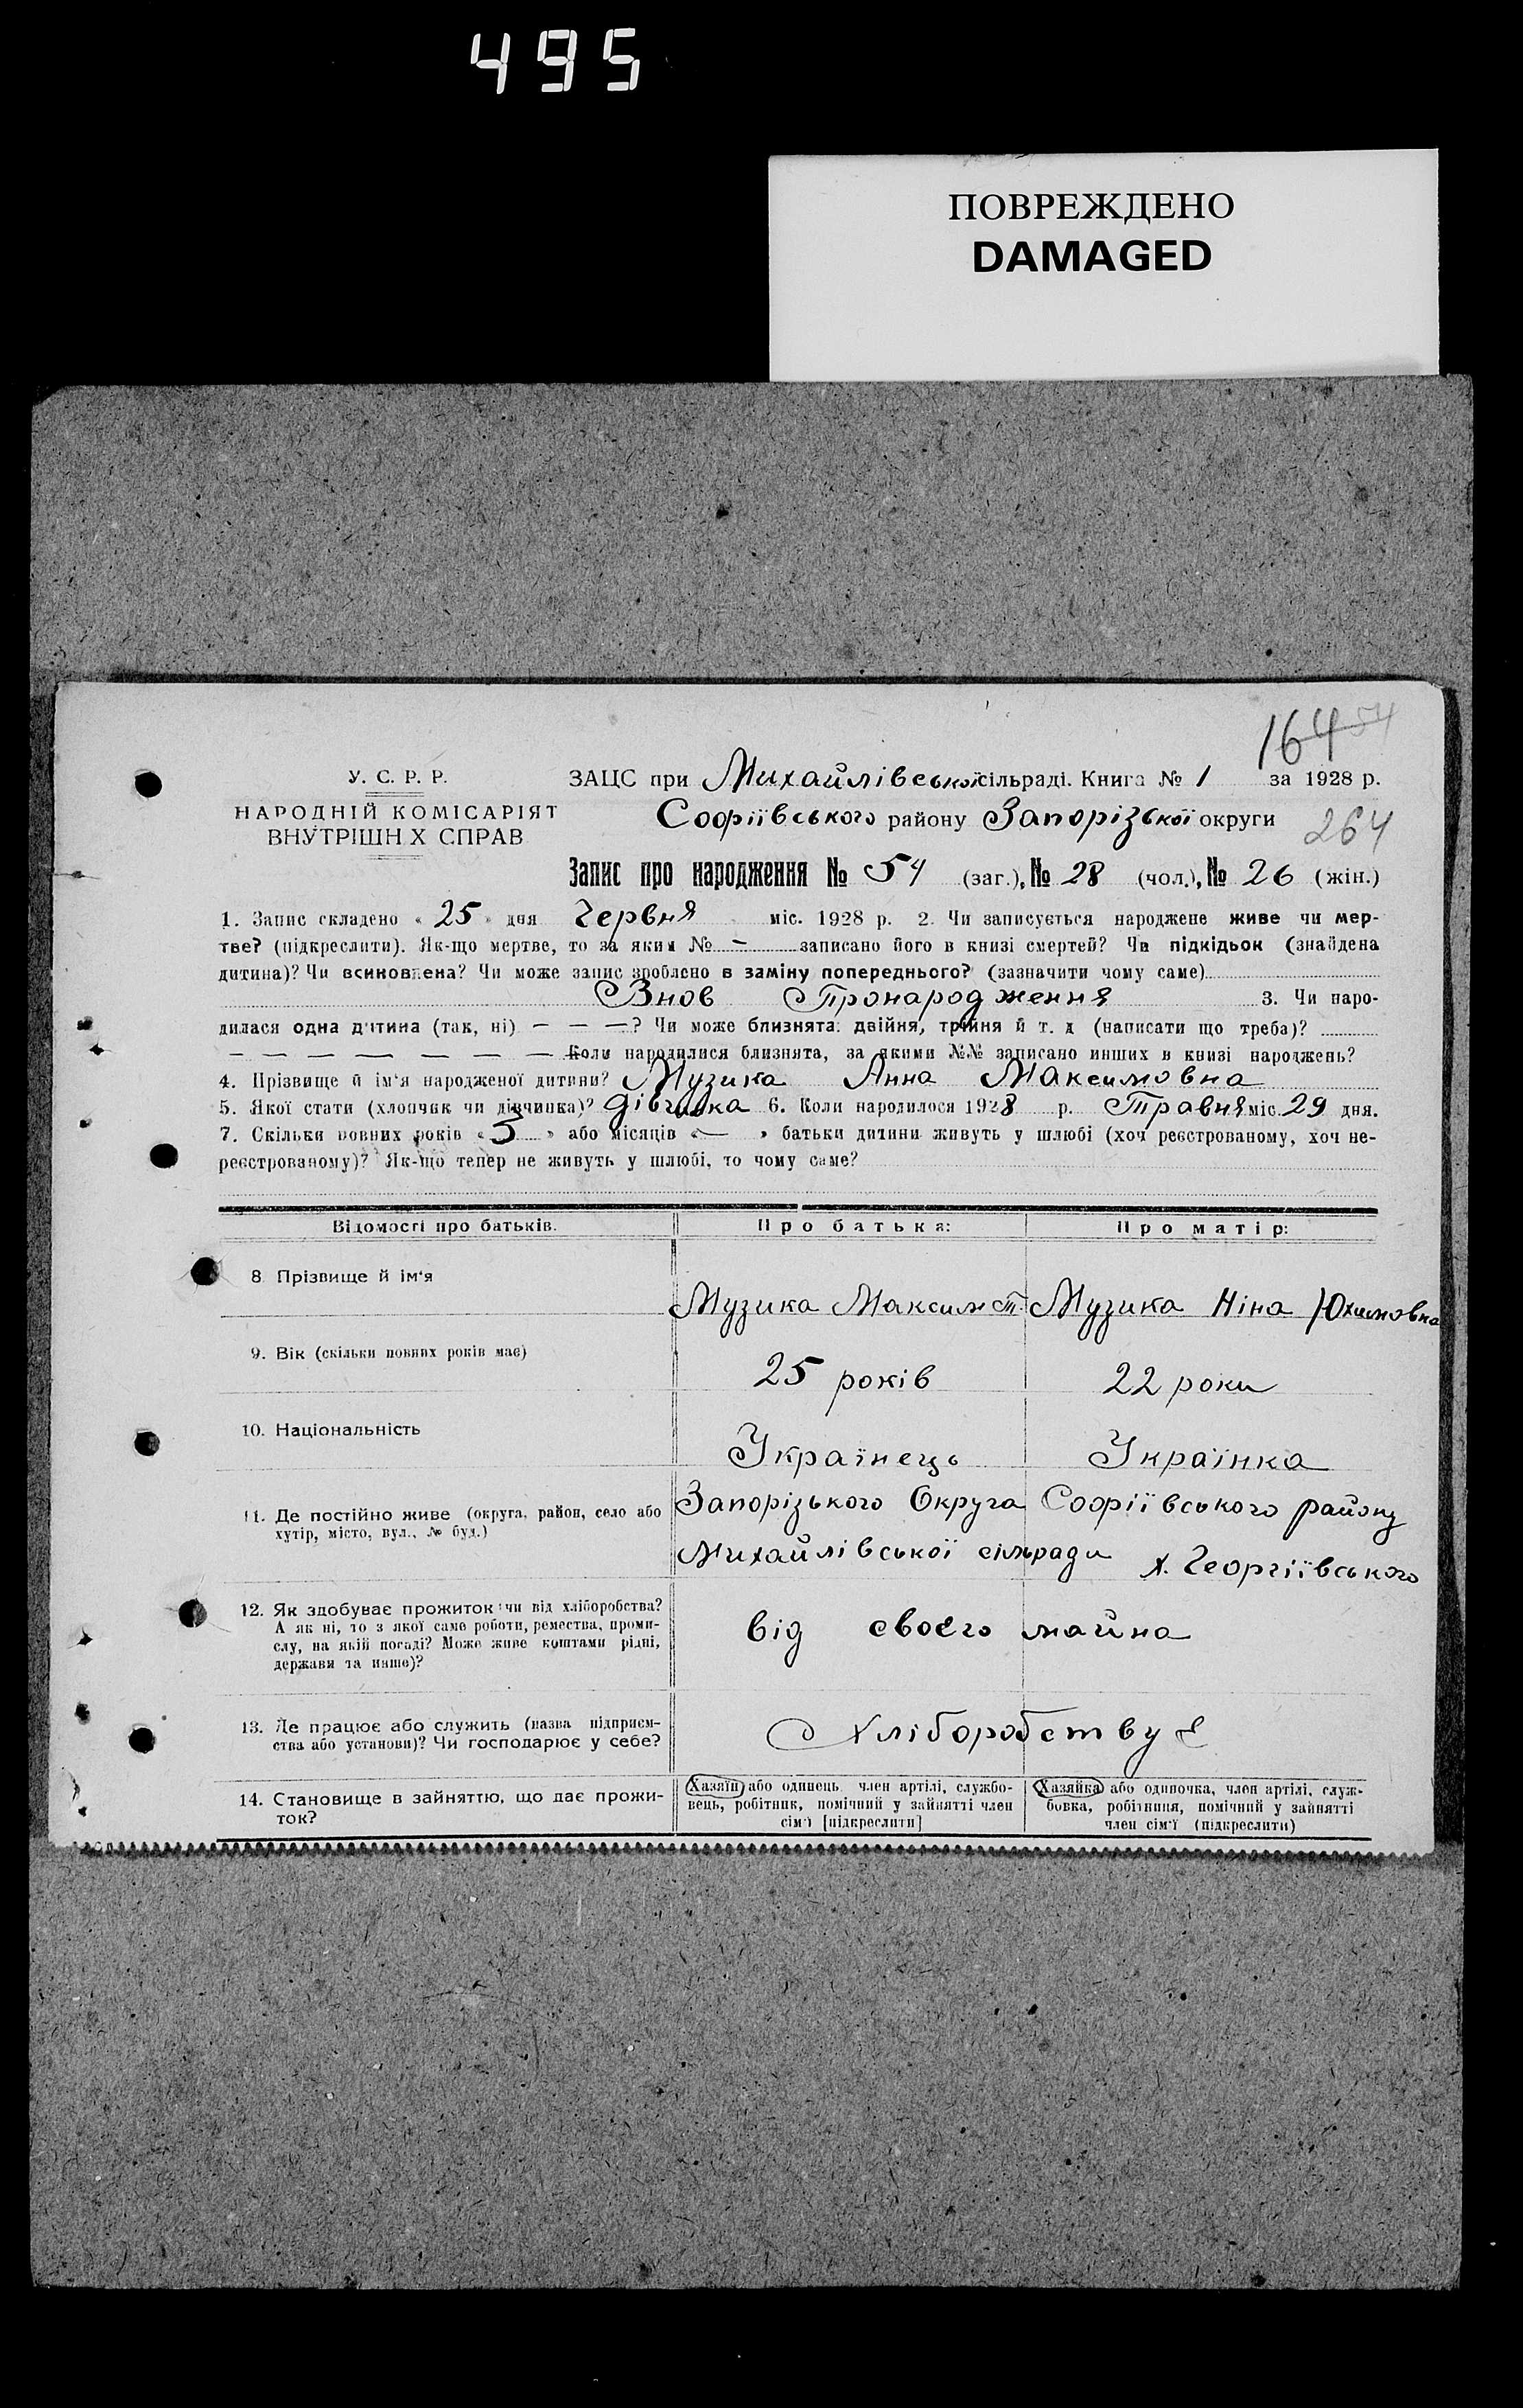 495
ПОВРЕЖДЕНО
DAMAGED
164 54
У. С. Р. Р.
НАРОДНІЙ КОМІСАРІЯТ
ВНУТРІШН Х СПРАВ
ЗАЦС при Михайлівської сільраді. Книга № 1 за 1928 р.
Софіївського району Запорізької округи
264
Запис про народження № 54 (заг.), № 28 (чол.), № 26 (жін.)
1. Запис складено « 25 » дня Червня міс. 1928 р. 2. Чи записується народжене живе чи мер-
тве? (підкреслити). Як-що мертве, то за яким № – записано його в книзі смертей? Чи підкідьок (знайдена
дитина)? Чи всиновлена? Чи може запис зроблено в заміну попереднього? (зазначити чому саме)
Внов Пронародження 3. Чи наро-
дилася одна дитина (так, ні) — — —? Чи може близнята: двійня, трійня й т. д (написати що треба)?
— — — — — — — — Коли народилися близнята, за якими №№ записано инших в книзі народжень?
4. Прізвище й ім'я народженої дитини? Музика Анна Максимовна
5. Якої стати (хлопчик чи дівчинка)? дівчинка 6. Коли народилося 1928 р. Травня міс. 29 дня.
7. Скільки повних років « 3 » або місяців « — » батьки дитини живуть у шлюбі (хоч реєстрованому, хоч не-
реєстрованому)? Як-що тепер не живуть у шлюбі, то чому саме?
Відомості про батьків. Про батька: Про матір:
8 Прізвище й ім'я
Музика Максим Т. Музика Ніна Юхимовна
9. Вік (скільки повних років має)
25 років 22 роки
10. Національність
Українець Українка
11. Де постійно живе (округа, район, село або
хутір, місто, вул., № буд.)
Запорізького Округа Софіївського району
Михайлівської сільради х. Георгіївського
12. Як здобуває прожиток: чи від хліборобства?
А як ні, то з якої саме роботи, ремества, проми-
слу, на якій посаді? Може живе коштами рідні,
держави та инше)?
від своєго майна
13. Де працює або служить (назва підприєм-
ства або установи)? Чи господарює у себе?
Хліборобствує
14. Становище в зайняттю, що дає прожи-
ток?
Хазяїн або одинець член артілі, службо-
вець, робітник, помічний у зайнятті член
сім'ї [підкреслити]
Хазяйка або одиночка, член артілі, служ-
бовка, робітниця, помічний у зайнятті
член сім'ї (підкреслити)